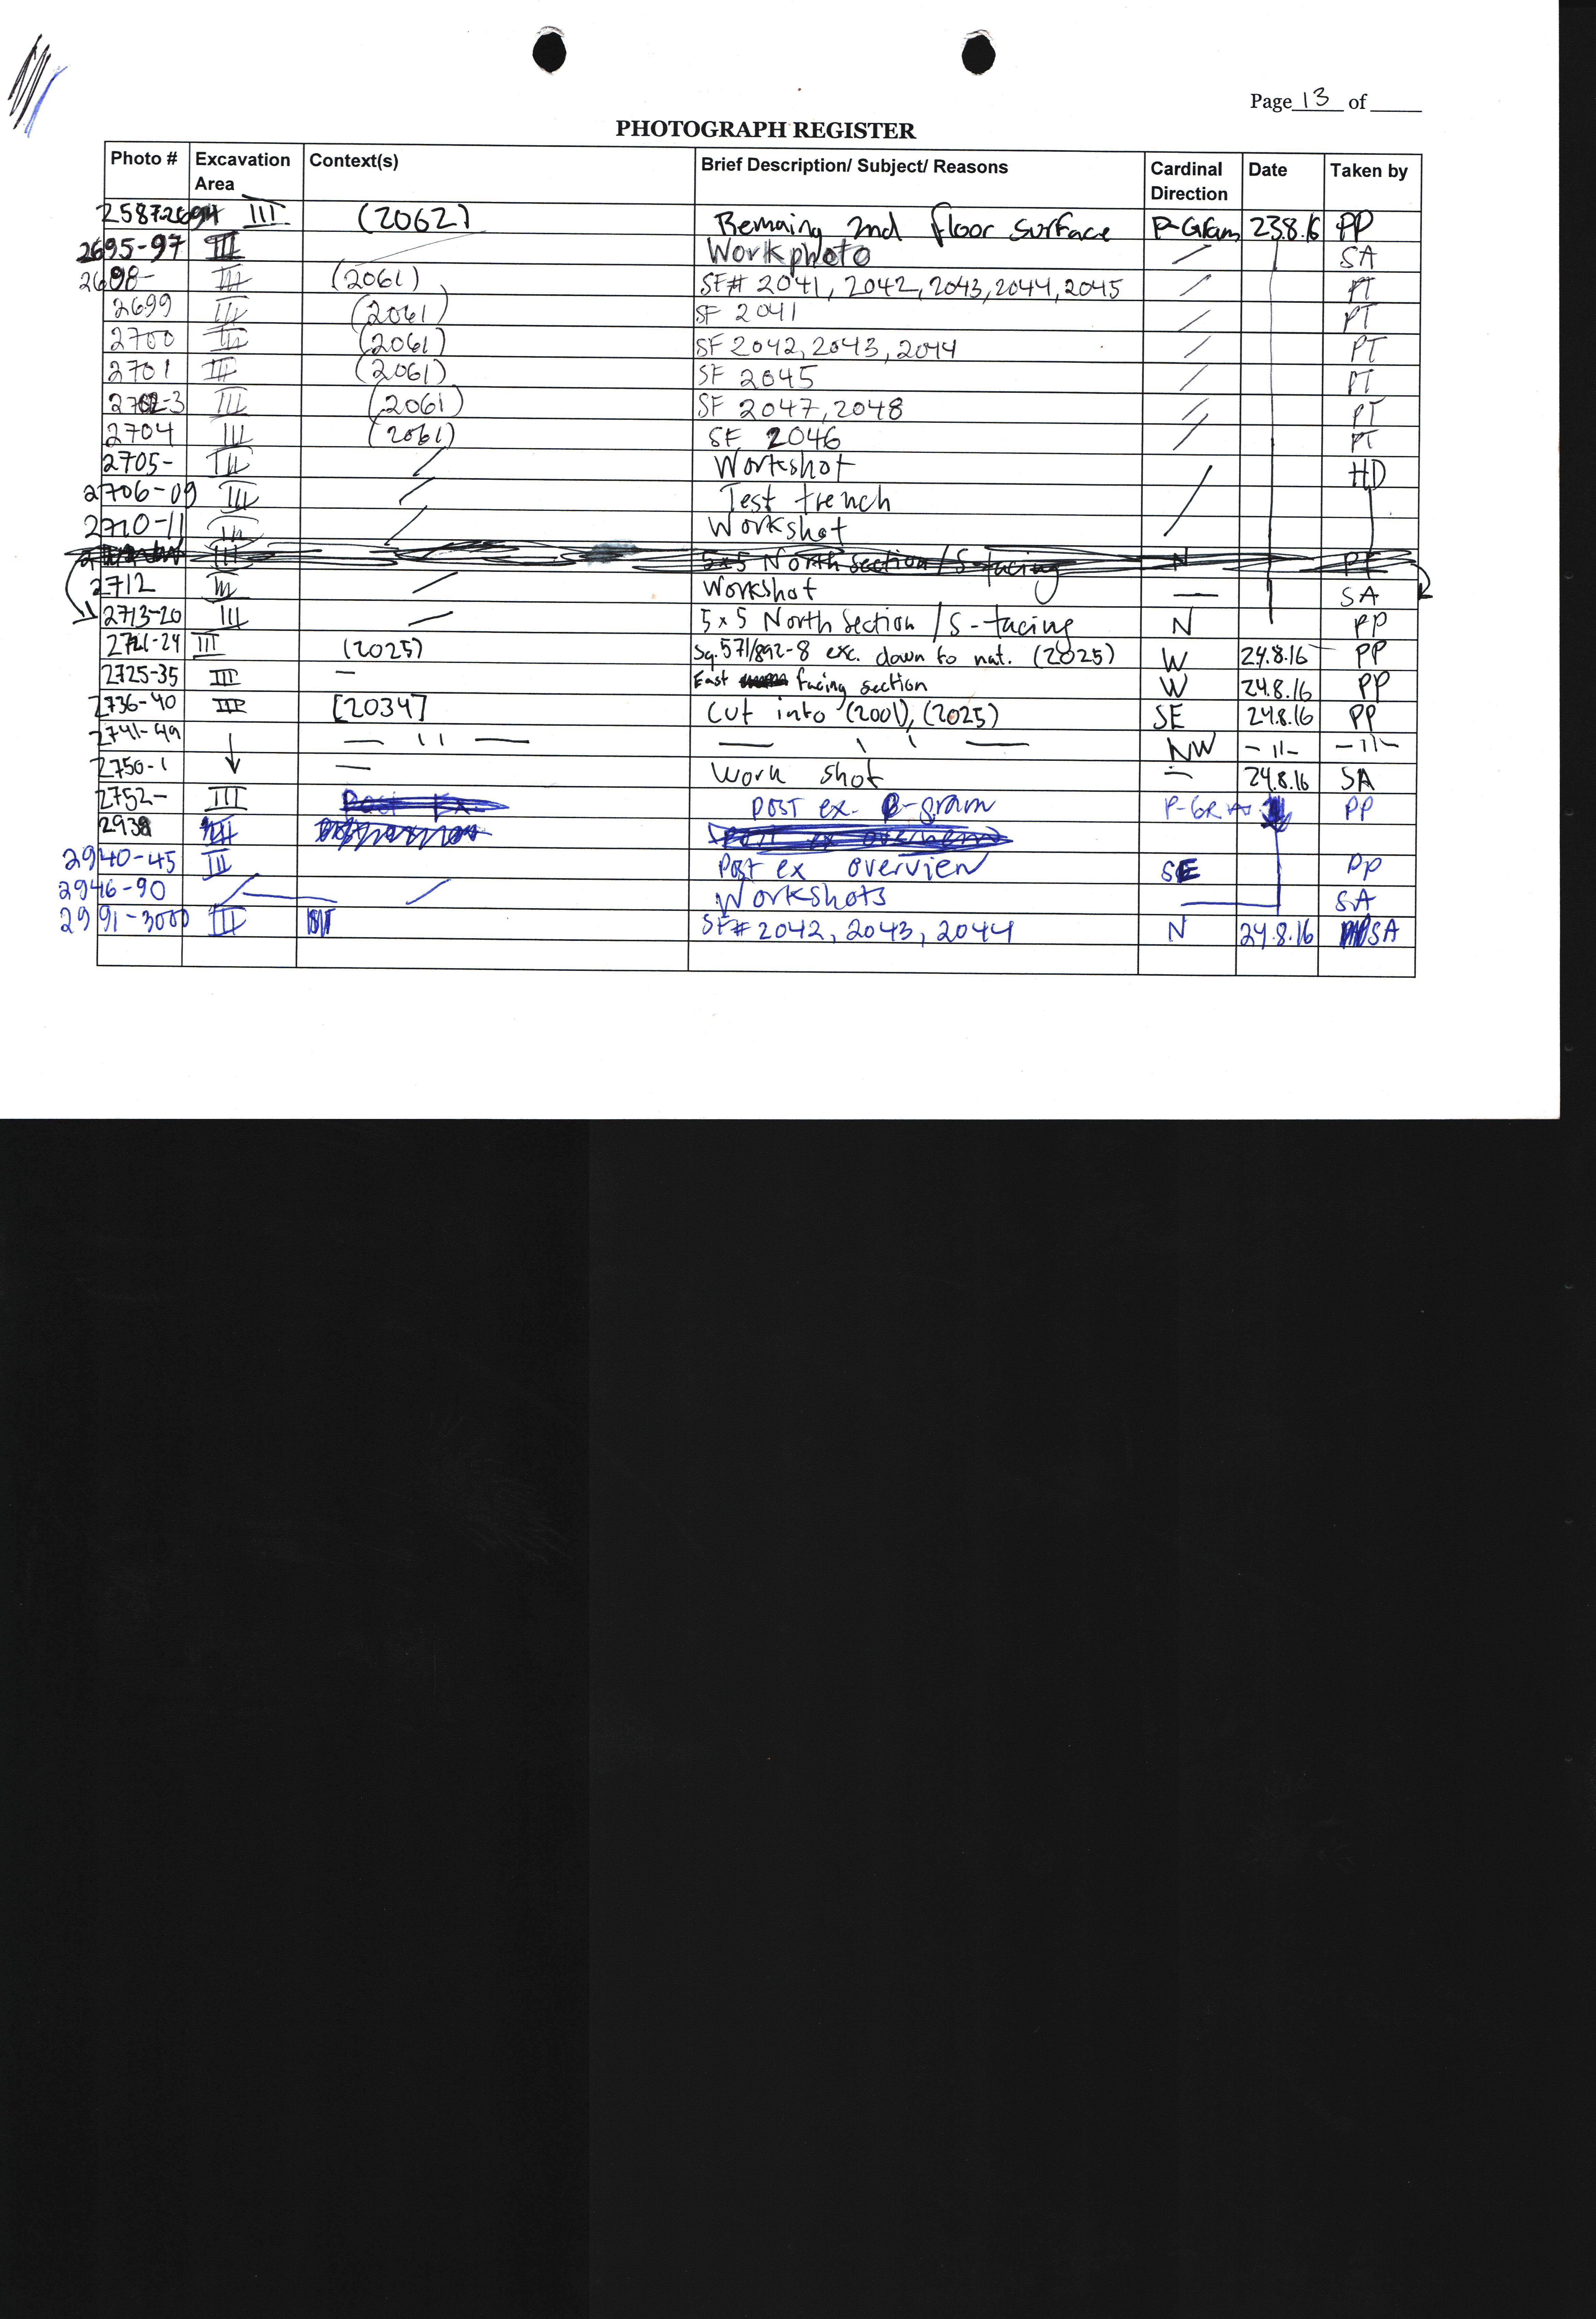 Page 13 of
PHOTOGRAPH REGISTER
Photo # Excavation Area Context(s) Brief Description/ Subject/ Reasons Cardinal Direction Date Taken by
2587-2694 III (2062) Remaing 2nd floor surface P-Gram 23.8.16 PP
2695-97 III Workphoto / SA
2698- III (2061) SF# 2041, 2042, 2043, 2044, 2045 / PT
2699 III (2061) SF 2041 / PT
2700 III (2061) SF 2042, 2043, 2044 / PT
2701 III (2061) SF 2045 / PT
2702-3 III (2061) SF 2047, 2048 // PT
2704 III (2061) SF 2046 / PT
2705- III / Workshot HD
2706-09 III / Test trench
2710-11 III / Workshot
III 5x5 North section / S-facing N
2712 III / Workshot — SA
2713-20 III — 5x5 North Section / S-facing N PP
2721-24 III (2025) Sq. 571/892-8 exc. down to nat. (2025) W 24.8.16 PP
2725-35 III — East facing section W 24.8.16 PP
2736-40 III [2034] Cut into (2001), (2025) SE 24.8.16 PP
2741-49 — 11 — — 11 — NW -11- -11-
2750-1 — Work shot — 24.8.16 SA
2752- III Post Ex post ex. P-gram P-Gram PP
2938 III Post ex overview
2940-45 III Post ex overview SE PP
2946-90 / Workshots SA
2991-3000 III SF# 2042, 2043, 2044 N 24.8.16 SA